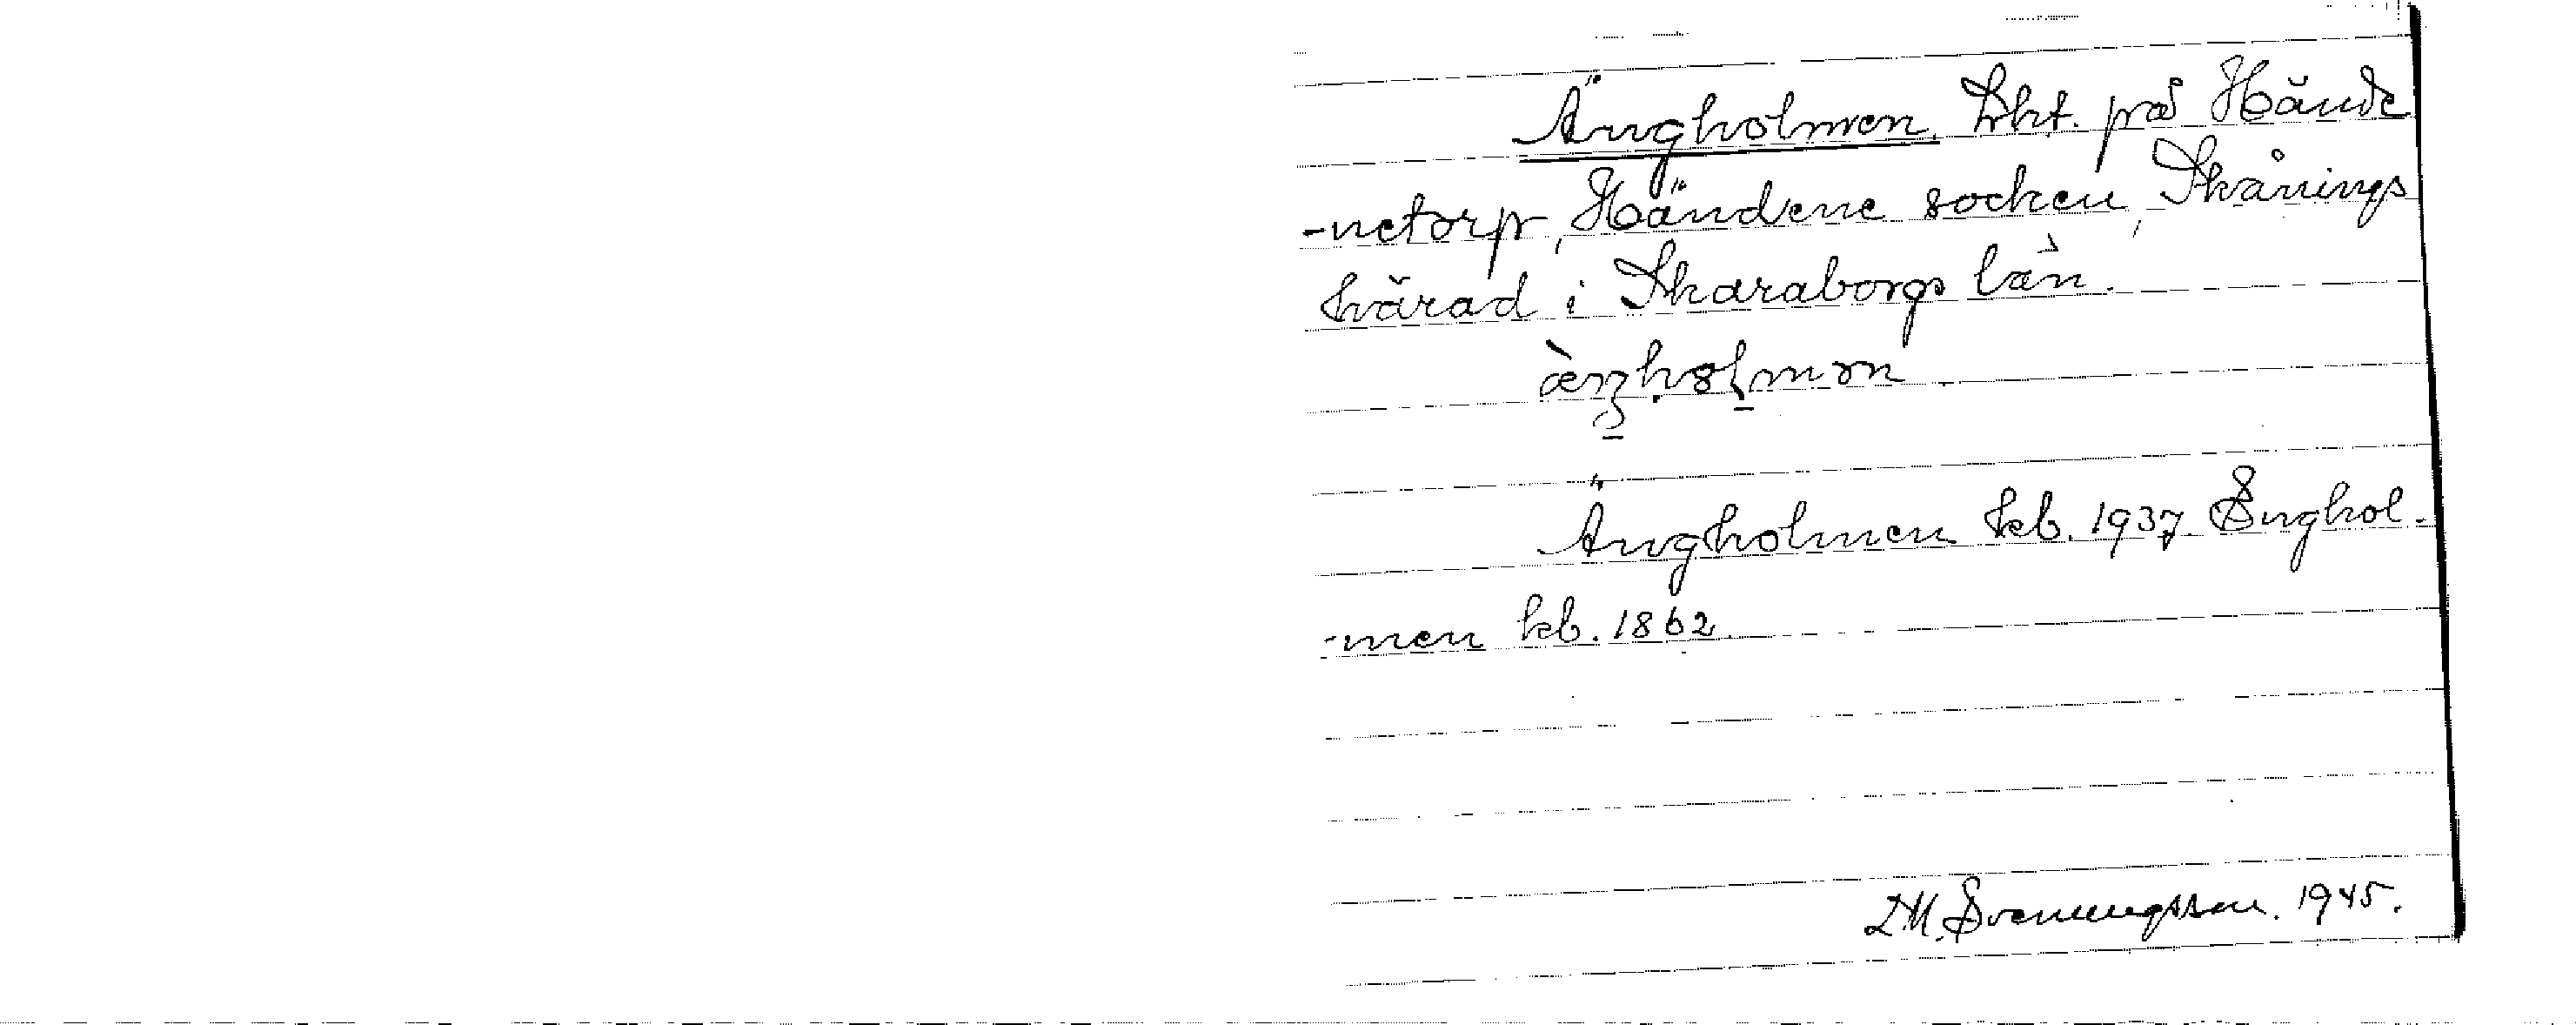 Ängholmen. Lht. på Hände
-netorp, Händene socken, Skånings
härad i Skaraborgs län.
Ängholmen kb. 1937. Enghol-
-men kb. 1862.
D.M. Svenungsson. 1945.